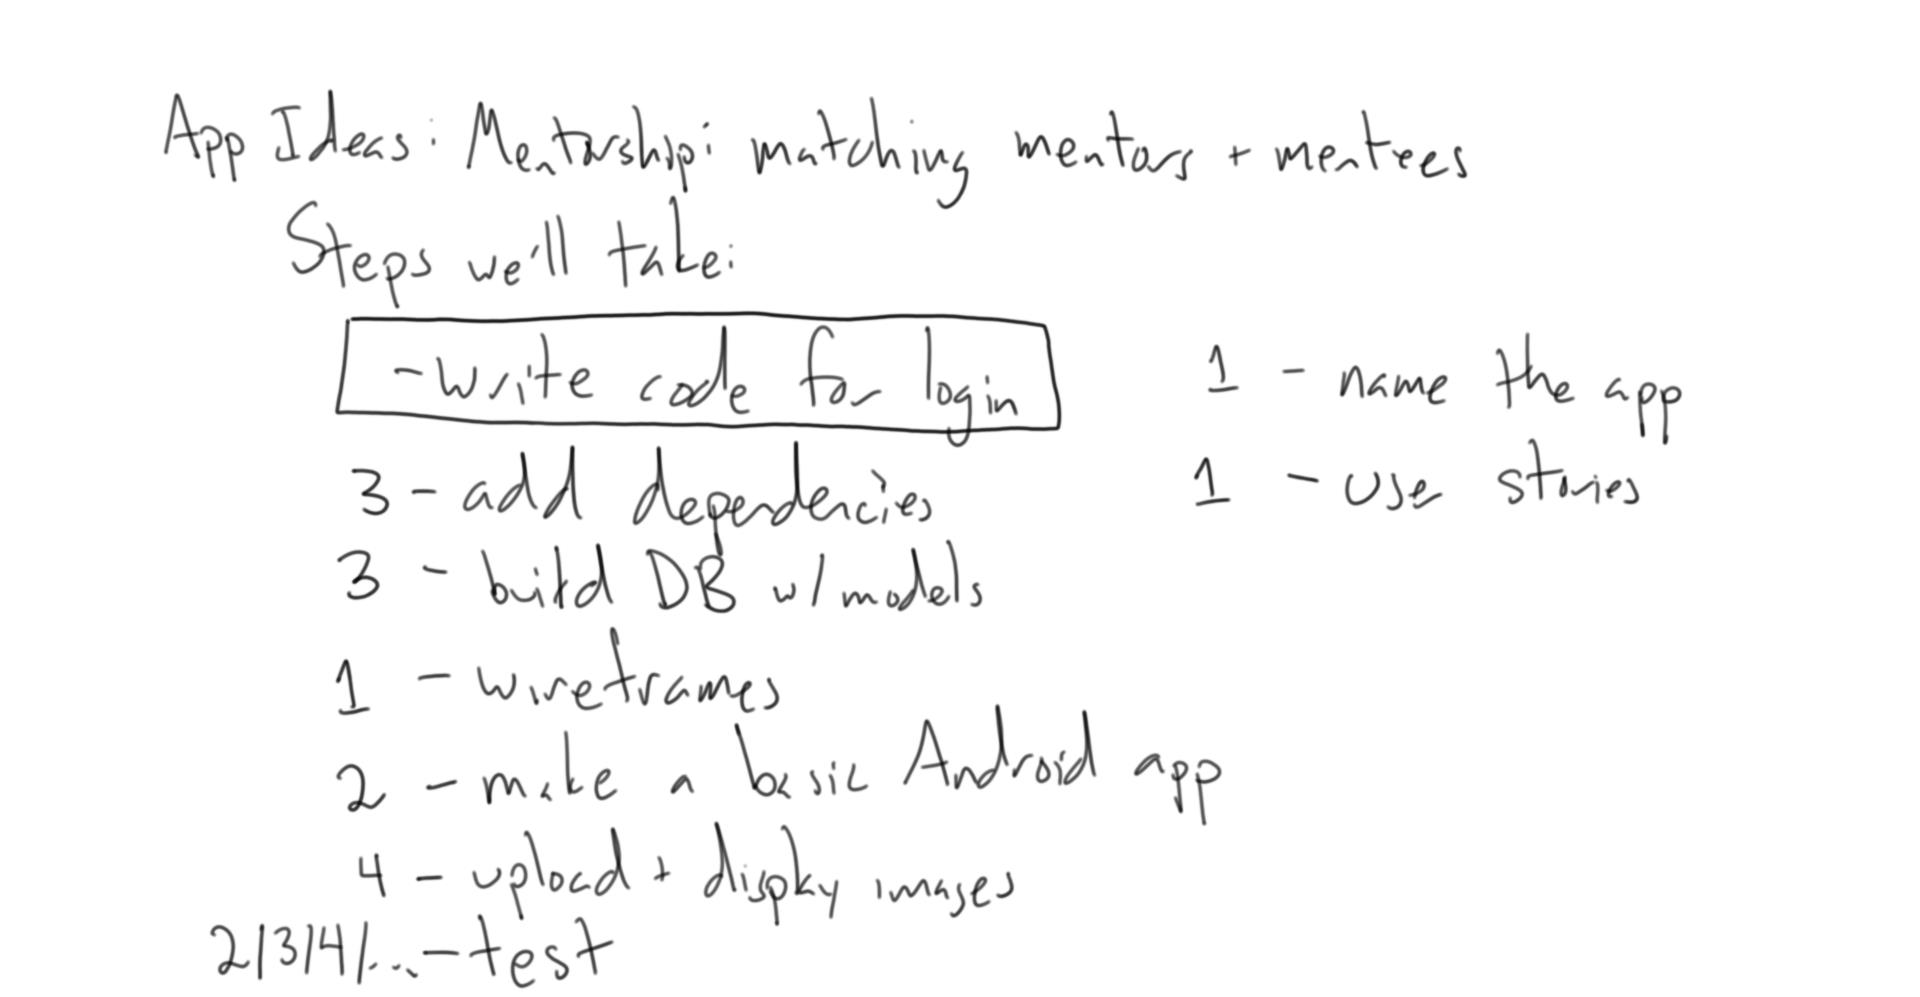 App Ideas: Mentorshpi: matching mentors + mentees
Steps we'll take:
- write code for login
3 - add dependencies
3 - build DB w/models
1 - wireframes
2 - make a basic Android app
4 - upload + display images
2/3/4/... - test
1 - name the app
1 - use stories